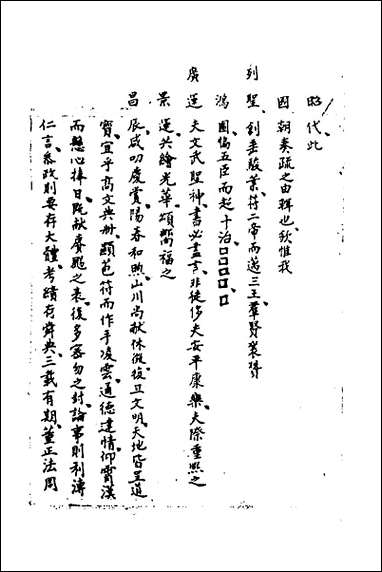 昭代此
國朝奏疏之由輯也欽惟我
列聖創垂駿業符二帝而邁三王羣賢襄贊
鴻圖偹五臣而起十治□□□□□
廣運夫文武聖神書必盡言非徒侈夫安平康樂夫際重熙之
景運共繪光華頌鬯福之
昌辰咸叨慶賞陽春和煦山川尚献休徵復旦文明天地皆呈道
寶宜乎高文典册顯苞符而作手凌雲通德達情仰霄漢
而懸心捧日既献賡颺之表復多密勿之封論事則利溥
仁言恭政則要存大體考績存舜典三載有期董正法周